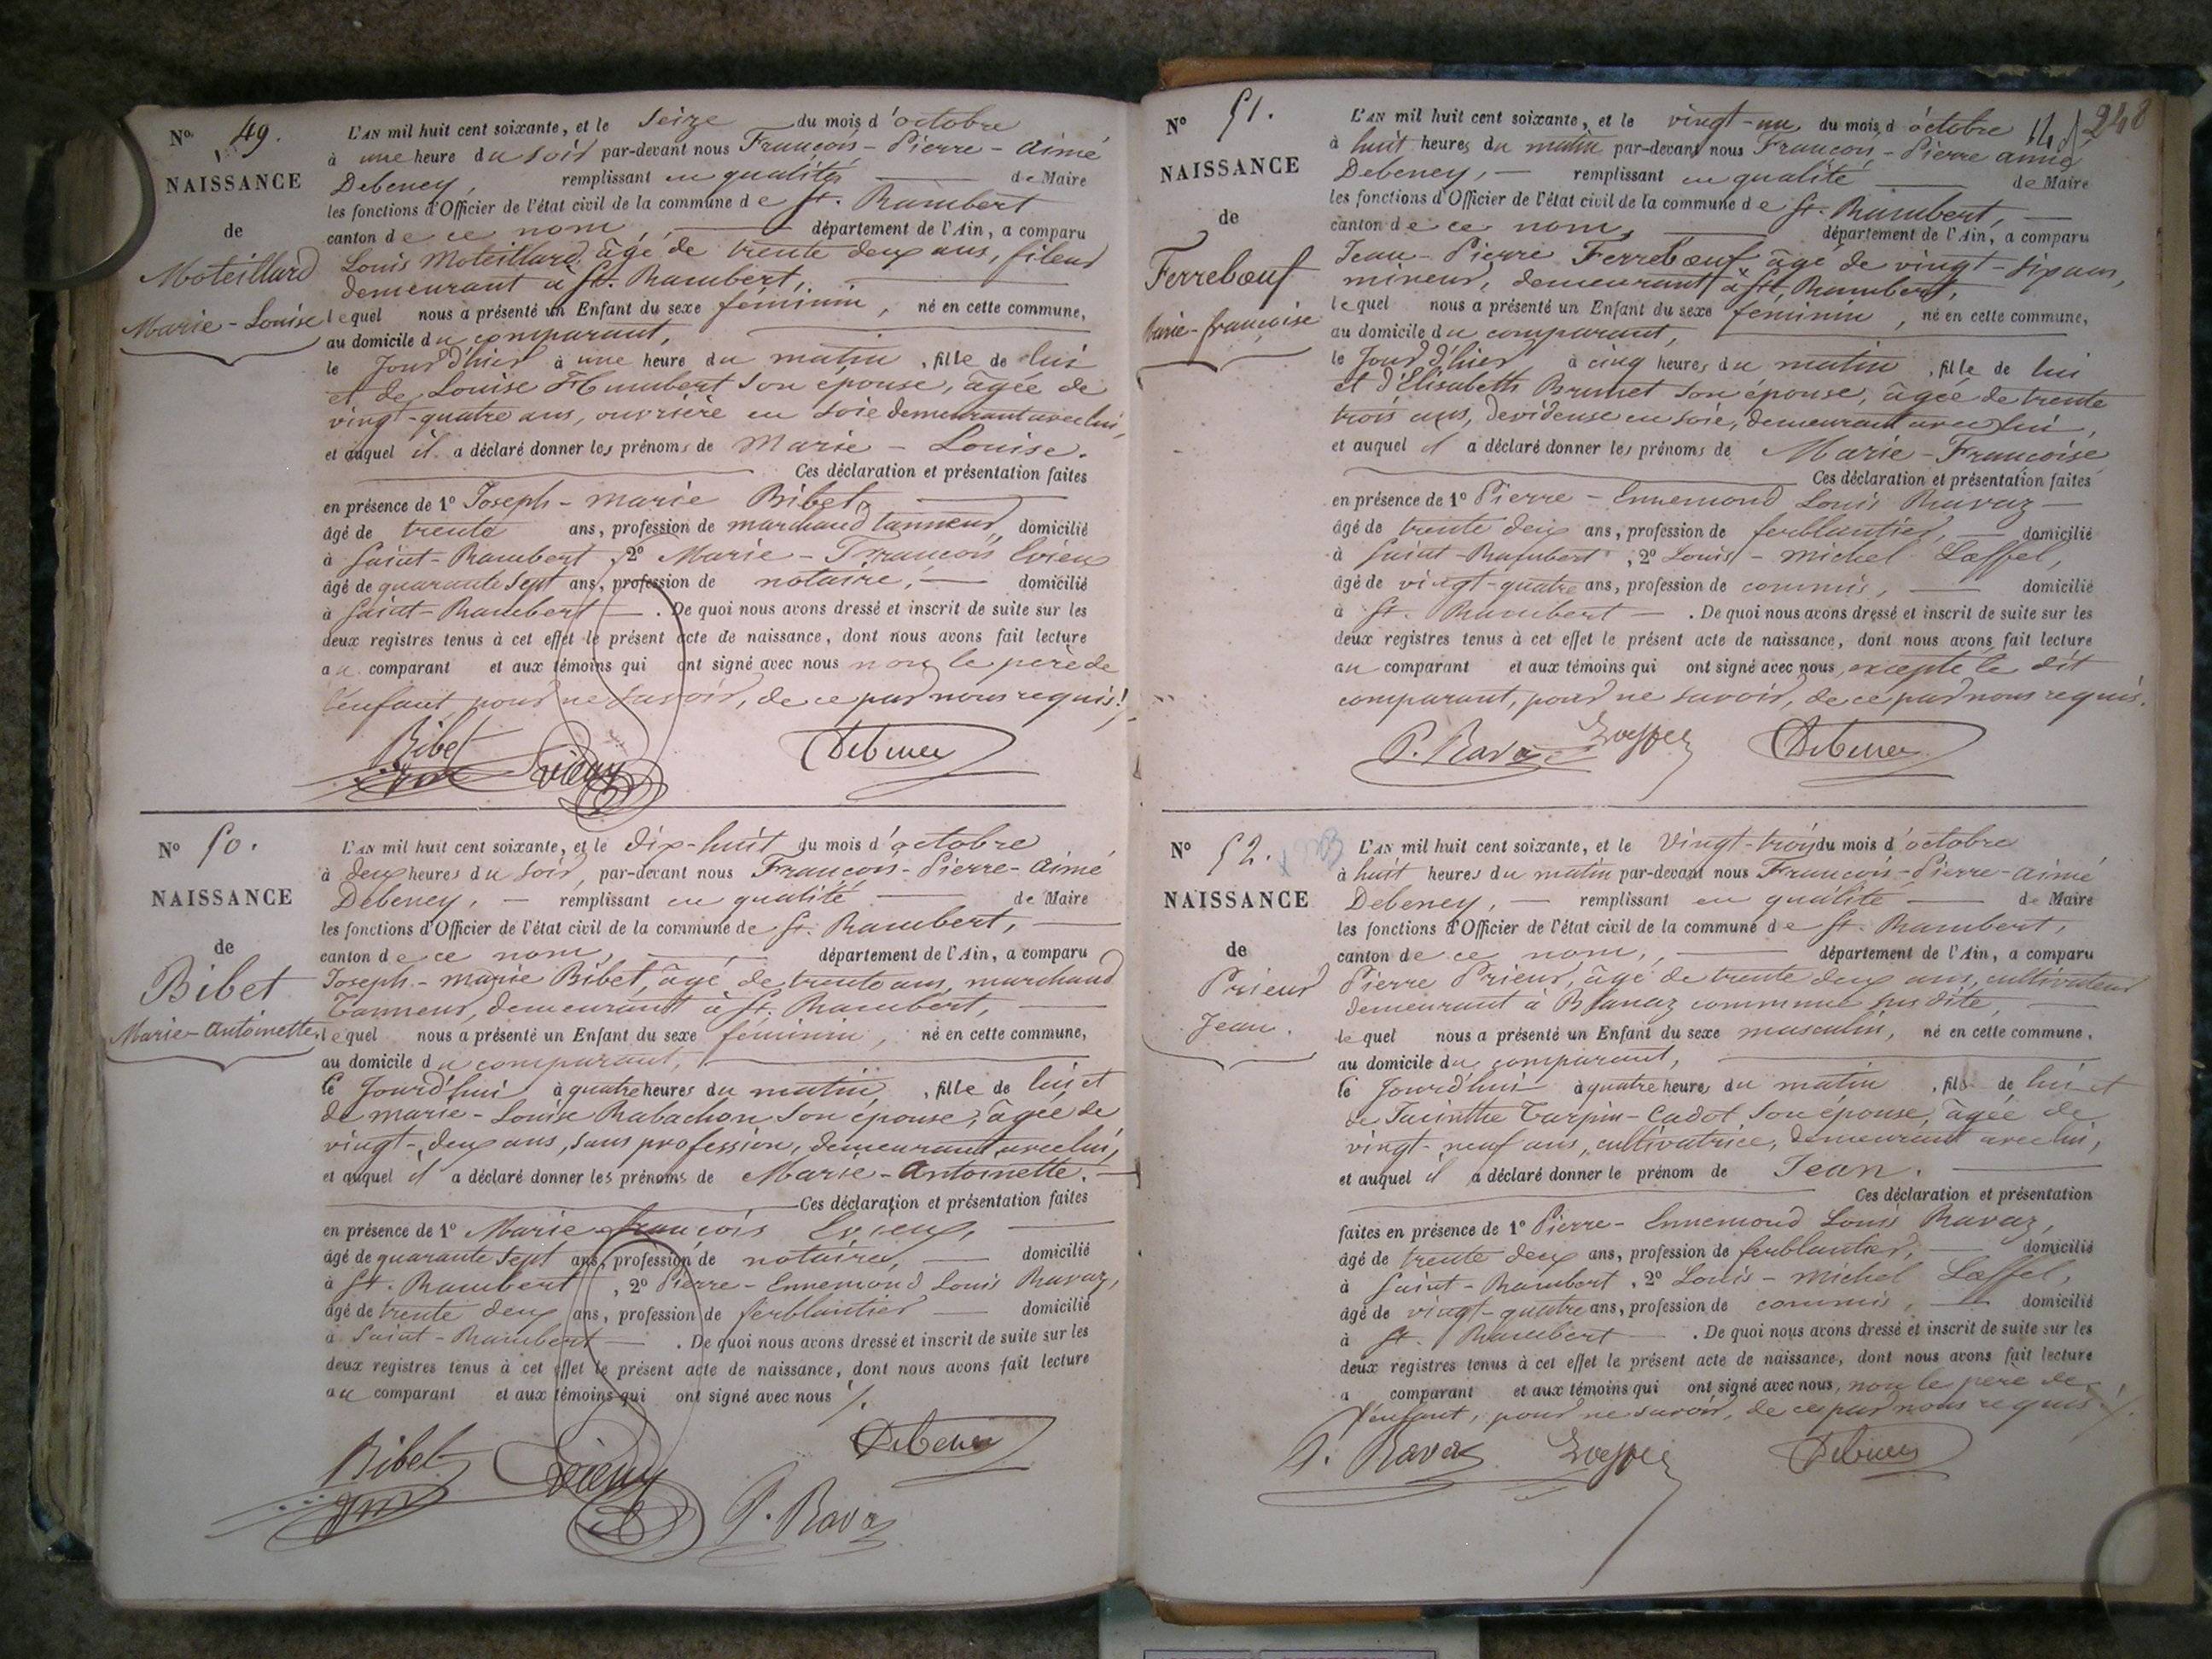 N° 49.
NAISSANCE
de
Moteillard
Marie-Louise
L'AN mil huit cent soixante, et le Seize du mois d'octobre
à une heure du soir par-devant nous François-Pierre-Aimé
Debeney, remplissant en qualité de Maire
les fonctions d'Officier de l'état civil de la commune de St. Rambert
canton de ce nom, département de l'Ain, a comparu
Louis Moteillard, âgé de trente deux ans, fileur
demeurant à St. Rambert,
lequel nous a présenté un Enfant du sexe féminin, né en cette commune,
au domicile du comparant,
le Jour d'hier à une heure du matin, fille de lui
et de Louise Humbert son épouse, âgée de
vingt-quatre ans, ouvrière en soie demeurant avec lui,
et auquel il a déclaré donner les prénoms de Marie-Louise.
Ces déclaration et présentation faites
en présence de 1° Joseph-Marie Bibet,
âgé de trente ans, profession de marchand tanneur, domicilié
à Saint-Rambert, 2° Marie-François Evieux
âgé de quarante sept ans, profession de notaire, domicilié
à Saint-Rambert. De quoi nous avons dressé et inscrit de suite sur les
deux registres tenus à cet effet le présent acte de naissance, dont nous avons fait lecture
au comparant et aux témoins qui ont signé avec nous non le père de
l'enfant pour ne savoir, de ce par nous requis.
Bibet Evieux Debeney
N° 50.
NAISSANCE
de
Bibet
Marie-Antoinette
L'AN mil huit cent soixante, et le dix-huit du mois d'octobre
à deux heures du soir, par-devant nous François-Pierre-Aimé
Debeney, remplissant en qualité de Maire
les fonctions d'Officier de l'état civil de la commune de St. Rambert,
canton de ce nom, département de l'Ain, a comparu
Joseph-Marie Bibet, âgé de trente ans, marchand
Tanneur, demeurant à St. Rambert,
lequel nous a présenté un Enfant du sexe féminin, né en cette commune,
au domicile du comparant,
le Jourd'hui à quatre heures du matin, fille de lui et
de Marie-Louise Rabachon son épouse, âgée de
vingt-deux ans, sans profession, demeurant avec lui,
et auquel il a déclaré donner les prénoms de Marie-Antoinette.
Ces déclaration et présentation faites
en présence de 1° Marie François Evieux,
âgé de quarante sept ans, profession de notaire, domicilié
à St. Rambert, 2° Pierre-Ennemond Louis Ravaz,
âgé de trente deux ans, profession de ferblantier domicilié
à Saint-Rambert. De quoi nous avons dressé et inscrit de suite sur les
deux registres tenus à cet effet le présent acte de naissance, dont nous avons fait lecture
au comparant et aux témoins qui ont signé avec nous
Bibet Evieux Debeney
P. Ravaz
248
N° 51.
NAISSANCE
de
Ferrebœuf
Marie-françoise
L'AN mil huit cent soixante, et le vingt-un du mois d'octobre
à huit heures du matin par-devant nous François-Pierre aimé
Debeney, remplissant en qualité de Maire
les fonctions d'Officier de l'état civil de la commune de St. Rambert,
canton de ce nom, département de l'Ain, a comparu
Jean-Pierre Ferrebœuf âgé de vingt-six ans,
mineur, demeurant à St. Rambert,
lequel nous a présenté un Enfant du sexe féminin, né en cette commune,
au domicile du comparant,
le Jour d'hier à cinq heures du matin, fille de lui
et d'Elisabeth Brunet son épouse, âgée de trente
trois ans, devideuse en soie, demeurant avec lui,
et auquel il a déclaré donner les prénoms de Marie-Françoise
Ces déclaration et présentation faites
en présence de 1° Pierre-Ennemond Louis Ravaz
âgé de trente deux ans, profession de ferblantier, domicilié
à Saint-Rambert, 2° Louis-Michel Lœffel,
âgé de vingt-quatre ans, profession de commis, domicilié
à St. Rambert. De quoi nous avons dressé et inscrit de suite sur les
deux registres tenus à cet effet le présent acte de naissance, dont nous avons fait lecture
au comparant et aux témoins qui ont signé avec nous, excepté le dit
comparant, pour ne savoir, de ce par nous requis.
P. Ravaz Loeffel Debeney
N° 52.
NAISSANCE
de
Prieur
Jean.
L'AN mil huit cent soixante, et le Vingt-trois du mois d'octobre
à huit heures du matin par-devant nous François-Pierre-Aimé
Debeney, remplissant en qualité de Maire
les fonctions d'Officier de l'état civil de la commune de St. Rambert,
canton de ce nom, département de l'Ain, a comparu
Pierre Prieur, âgé de trente deux ans, cultivateur
demeurant à Blanaz commune sus dite,
lequel nous a présenté un Enfant du sexe masculin, né en cette commune,
au domicile du comparant,
le Jourd'hui à quatre heures du matin, fils de lui et
de Jacinthe Tarpin-Cadot son épouse, âgée de
vingt-neuf ans, cultivatrice, demeurant avec lui,
et auquel il a déclaré donner le prénom de Jean.
Ces déclaration et présentation
faites en présence de 1° Pierre-Ennemond Louis Ravaz,
âgé de trente deux ans, profession de ferblantier, domicilié
à Saint-Rambert, 2° Louis-Michel Lœffel,
âgé de vingt-quatre ans, profession de commis, domicilié
à St. Rambert. De quoi nous avons dressé et inscrit de suite sur les
deux registres tenus à cet effet le présent acte de naissance, dont nous avons fait lecture
a comparant et aux témoins qui ont signé avec nous, non le père de
l'enfant, pour ne savoir, de ce par nous requis.
P. Ravaz Loeffel Debeney